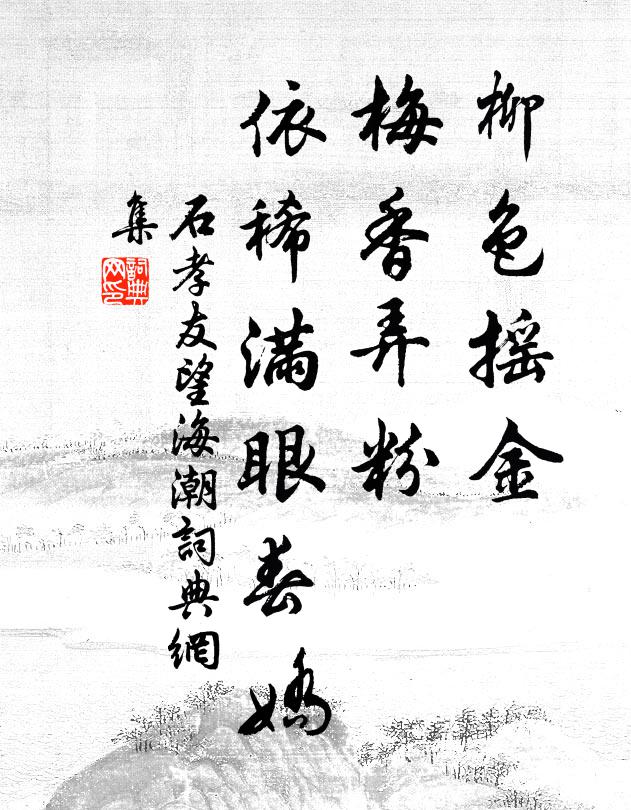 柳色摇金
梅香弄粉
依稀满眼春娇
石孝友望海潮詞典網
集
詞典
网印